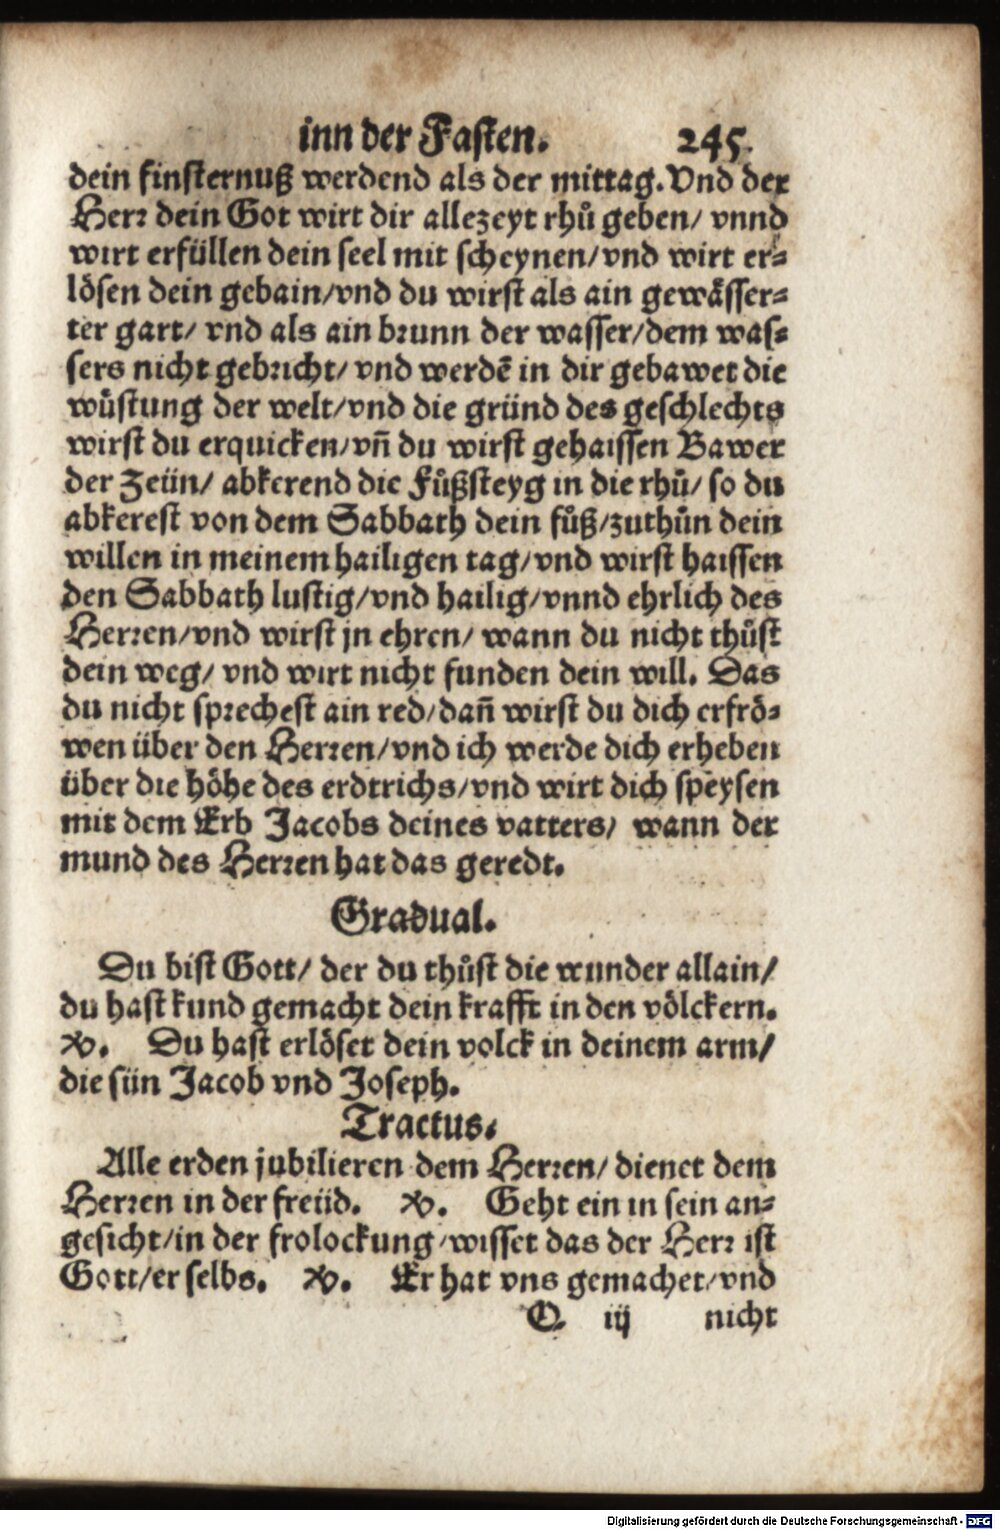 inn der Fasten. 245.
dein finsternuß werdend als der mittag. Vnd der
Herr dein Got wirt dir allezeyt rhů geben/ vnnd
wirt erfüllen dein seel mit scheynen/vnd wirt er⸗
lösen dein gebain/vnd du wirst als ain gewässer⸗
ter gart/ vnd als ain brunn der wasser/dem was⸗
sers nicht gebricht/ vnd werdē in dir gebawet die
wůstung der welt/vnd die gründ des geschlechts
wirst du erquicken/vñ du wirst gehaissen Bawer
der Zeün/ abkerend die Fůßsteyg in die rhů/ so du
abkerest von dem Sabbath dein fůß/zuthůn dein
willen in meinem hailigen tag/vnd wirst haissen
den Sabbath lustig/vnd hailig/vnnd ehrlich des
Herren/vnd wirst jn ehren/ wann du nicht thůst
dein weg/ vnd wirt nicht funden dein will. Das
du nicht sprechest ain red/dañ wirst du dich erfrö⸗
wen über den Herren/vnd ich werde dich erheben
über die höhe des erdtrichs/vnd wirt dich speysen
mit dem Erb Jacobs deines vatters/ wann der
mund des Herren hat das geredt.
Gradual.
Du bist Gott/ der du thůst die wunder allain/
du hast kund gemacht dein krafft in den völckern.
℣. Du hast erlöset dein volck in deinem arm/
die sün Jacob vnd Joseph.
Tractus.
Alle erden jubilieren dem Herren/ dienet dem
Herren in der freüd. ℣. Geht ein in sein an⸗
gesicht/in der frolockung/wisset das der Herr ist
Gott/er selbs. ℣. Er hat vns gemachet/vnd
Q iij nicht
Digitalisierung gefördert durch die Deutsche Forschungsgemeinschaft - DFG